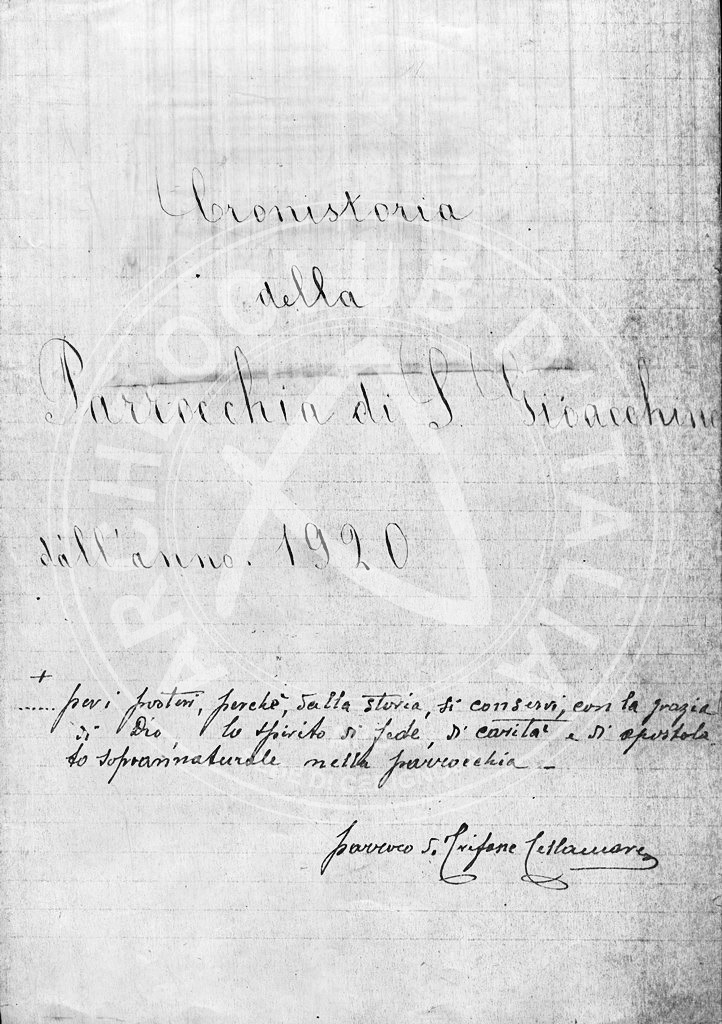 Cronistoria
della
Parrocchia di S. Gioacchino
dall'anno. 1920
+
...... per i posteri, perchè, dalla storia, si conservi, con la grazia
di Dio, lo spirito di fede, di carità e di apostola
to soprannaturale nella parrocchia _
parroco d. Trifone Cellamare
ARCHEOCLUB D'ITALIA